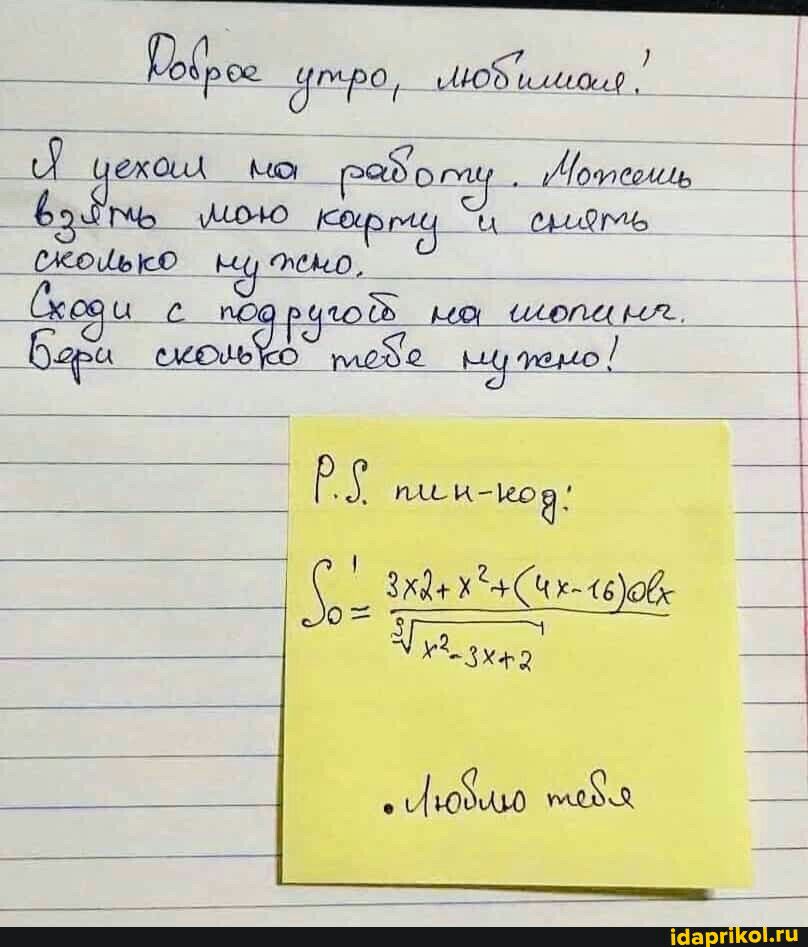 Доброе утро, любимая!
Я уехал на работу. Можешь
взять мою карту и снять
сколько нужно.
Сходи с подругой на шопинг.
Бери сколько тебе нужно!
P.S. пин-код:
∫₀¹ = 3x2+x²+(4x-16)dx
∛x²-3x+2
. Люблю тебя
idaprikol.ru